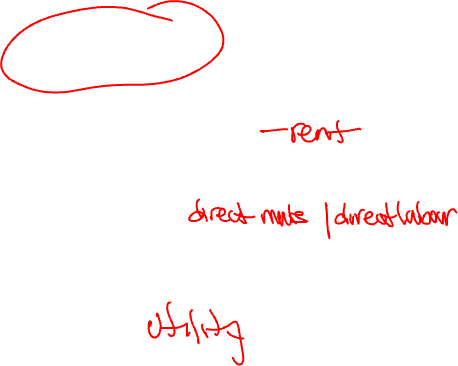 - rent
direct mats / direct labour
utility